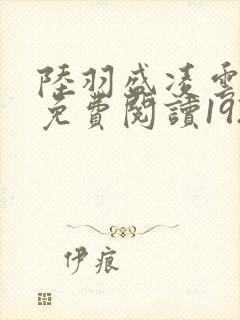 陸羽盛凌雲
免費閱讀19
伊痕